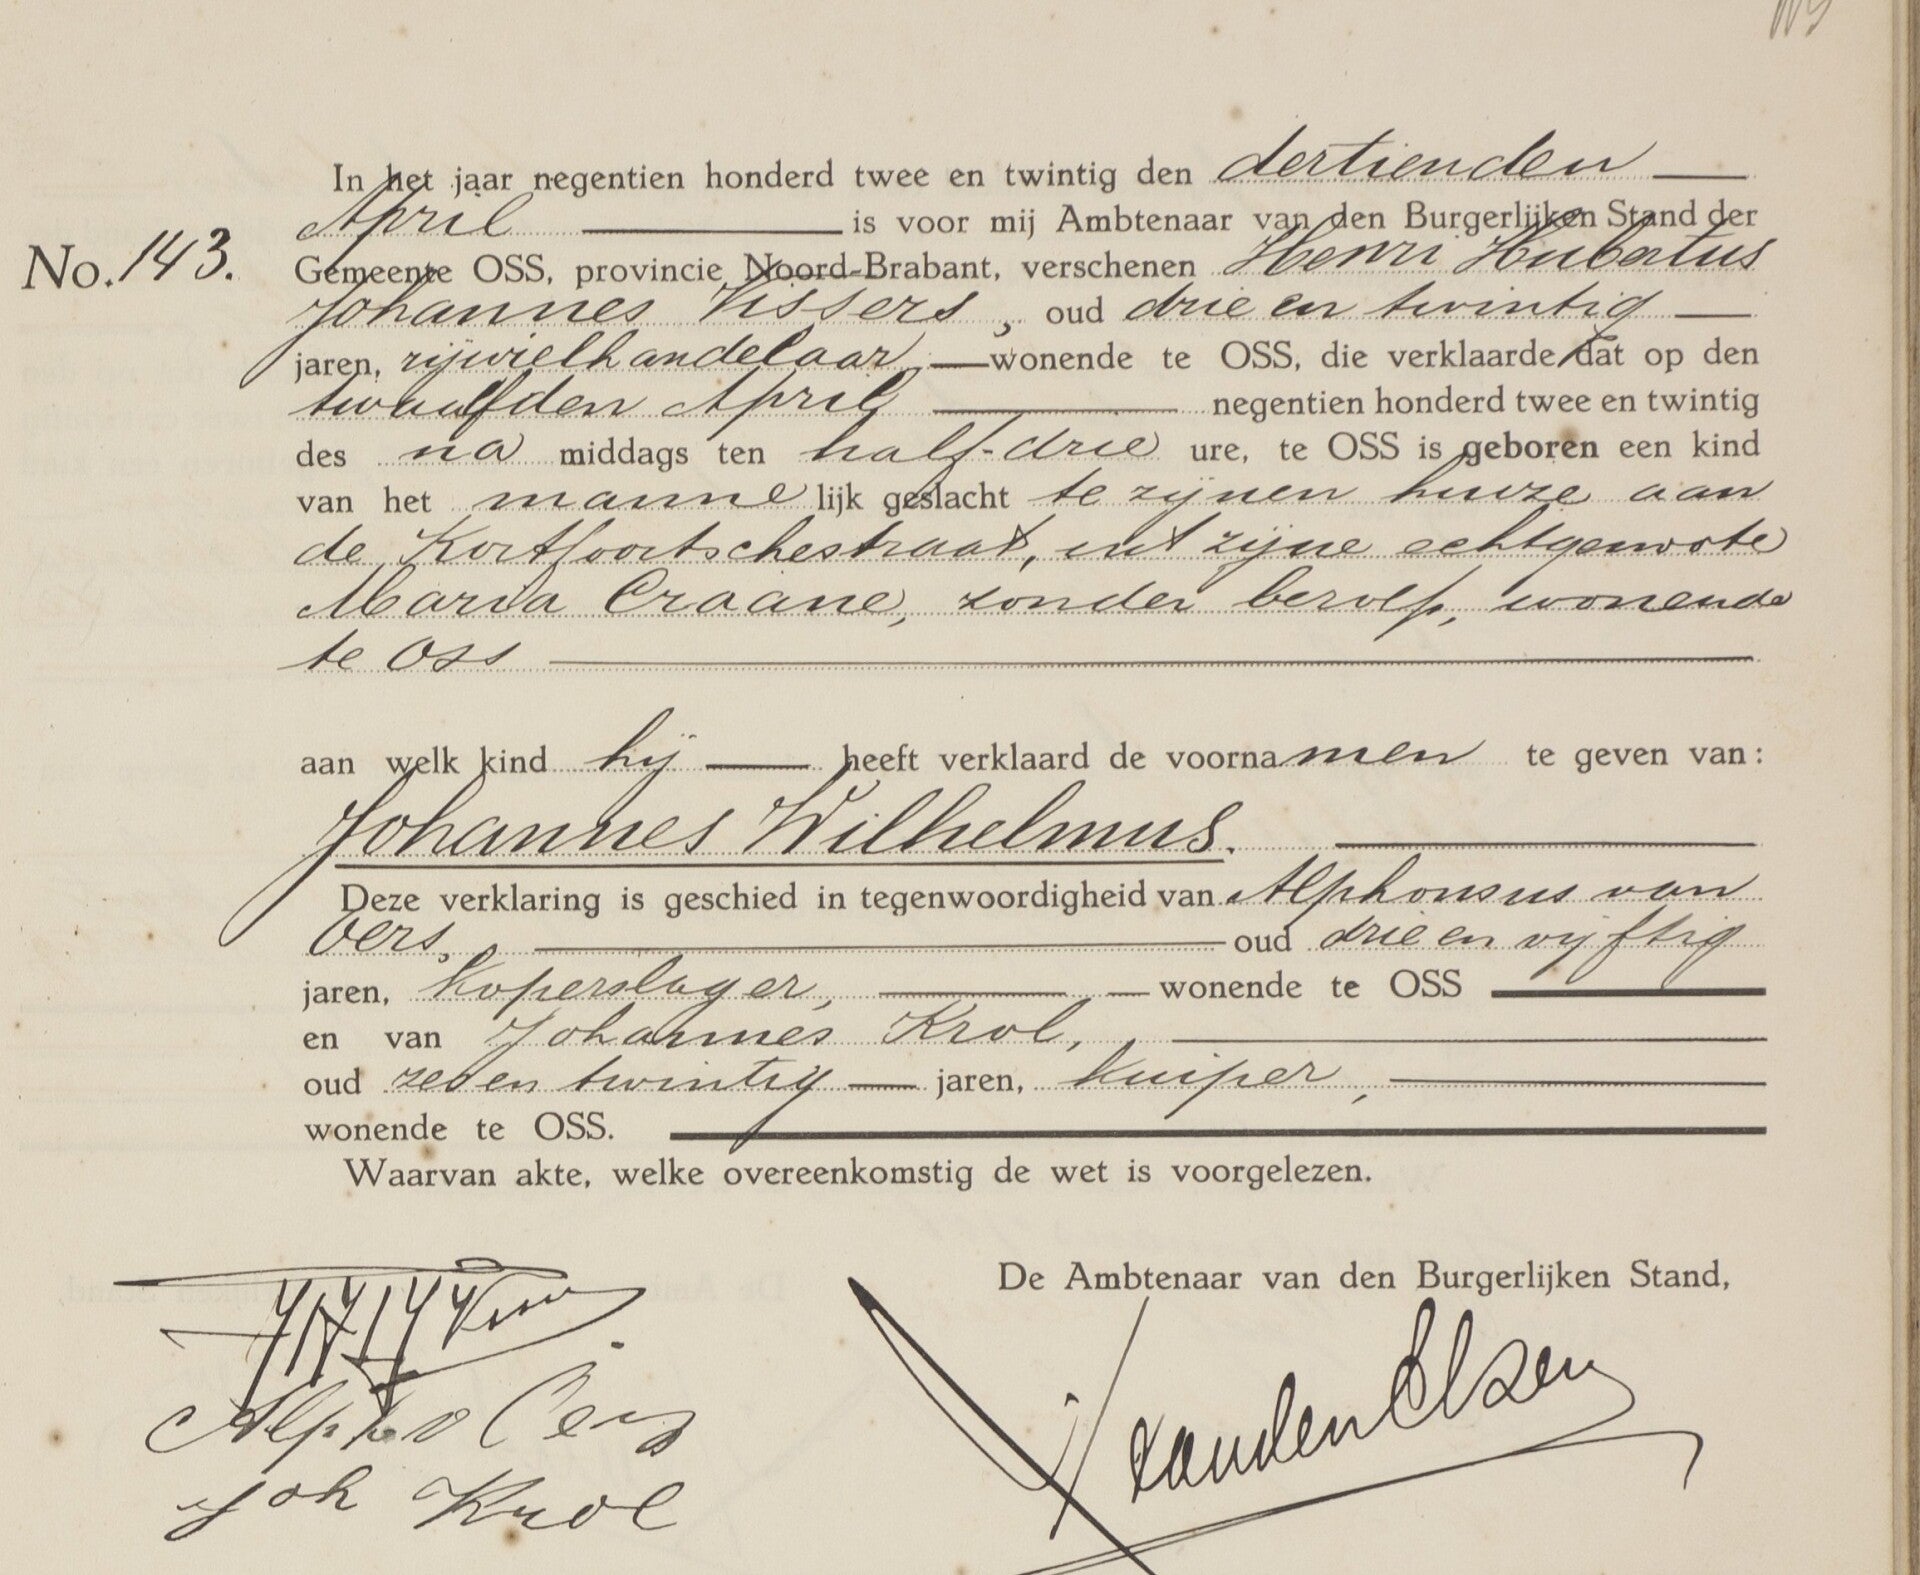 In het jaar negentien honderd twee en twintig den dertienden
April is voor mij Ambtenaar van den Burgerlijken Stand der
No. 143.
Gemeente OSS, provincie Noord-Brabant, verschenen Henri Hubertus
Johannes Vissers, oud drie en twintig
jaren, rijwielhandelaar, wonende te OSS, die verklaarde dat op den
twaalfden April negentien honderd twee en twintig
des na middags ten half-drie ure, te OSS is geboren een kind
van het mannelijk geslacht te zijnen huize aan
de Kortfoortschestraat, uit zijne echtgenoote
Maria Craane, zonder beroep, wonende
te Oss
aan welk kind hij heeft verklaard de voornamen te geven van:
Johannes Wilhelmus.
Deze verklaring is geschied in tegenwoordigheid van Alphonsus van
Oers, oud drie en vijftig
jaren, koperslager, wonende te OSS
en van Johannes Krol,
oud zes en twintig jaren, kuiper,
wonende te OSS.
Waarvan akte, welke overeenkomstig de wet is voorgelezen.
De Ambtenaar van den Burgerlijken Stand,
van den Elzen
Alph v Oers
Joh Krol